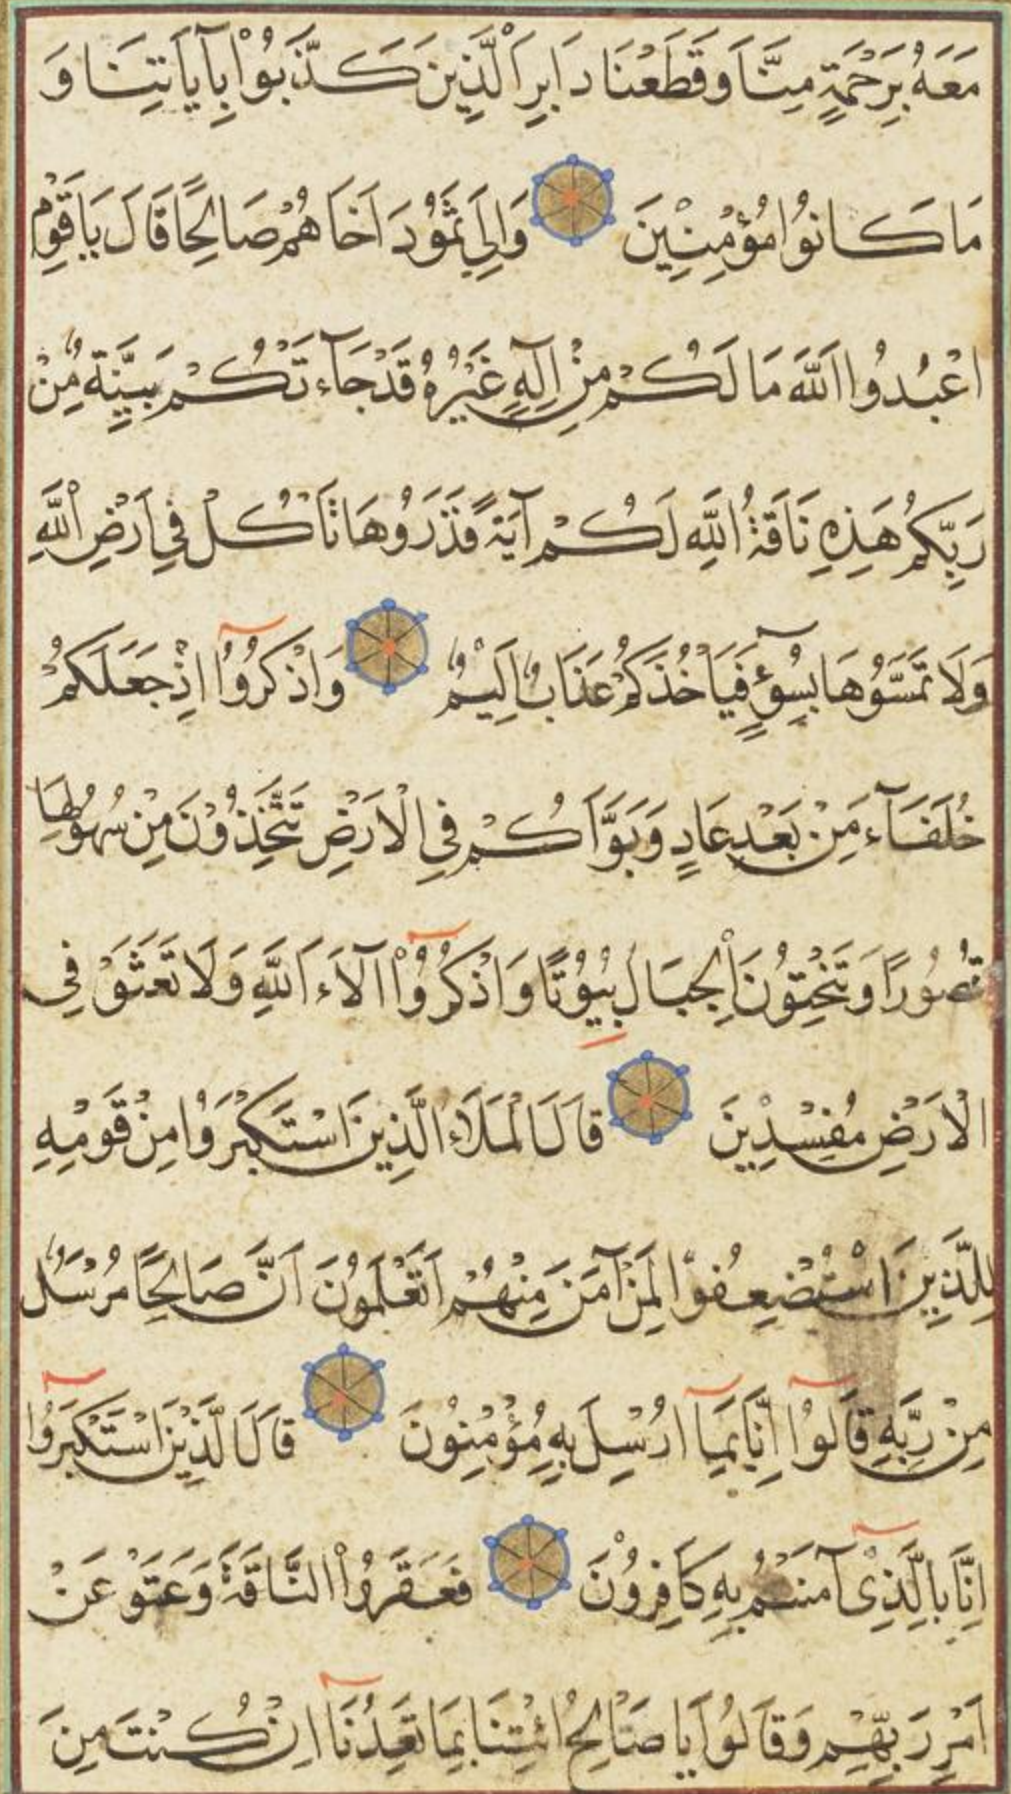 مَعَهُ بِرَحْمَةٍ مِنَّا وَقَطَعْنَا دَابِرَ الَّذِينَ كَذَّبُوْا بِآيَاتِنَا وَ
مَا كَانُوُا مُؤْمِنِيْنَ وَاِلَى ثَمُوُدَ اَخَاهُمْ صَالِحًا قَالَ يَا قَوْمِ
اعْبُدُوا اللَّهَ مَا لَكُمْ مِنْ اِلَهٍ غَيْرُهُ قَدْ جَآءَتْكُمْ بَيِّنَةٌ مِنْ
رَبِّكُمْ هَذِهِ نَاقَةُ اللَّهِ لَكُمْ آيَةً فَذَرُوهَا تَأكُلْ فِى اَرْضِ اللَّهِ
وَلَا تَمَسُّوُهَا بِسُوٓءٍ فَيَأْخُذَكُمْ عَذَابٌ اَلِيْمٌ وَاذْكُرُوُٓا اِذْ جَعَلَكُمْ
خُلَفَآءَ مَنْ بَعْدِ عَادٍ وَبَوَّاَكُمْ فِى الْاَرْضِ تَتَّخِذُوْنَ مِنْ سُهُوُلِهَا
قُصُوُرًا وَتَنْحِتُوُنَ الْجِبَالَ بُيُوْتًا وَاذْكُرُوْٓا آلَاءَ اللَّهِ وَلَا تَعْثَوْ فِى
الْاَرْضِ مُفْسِدِيْنَ قَالَ الْمَلَاُ الَّذِينَ اسْتَكْبَرُوُا مِنْ قَوْمِهِ
لِلَّذِيِنَ اسْتُضْعِفُوْا لِمَنْ آمَنَ مِنْهُمْ اَتَعْلَمُوُنَ اَنَّ صَالِحًا مُرْسَلٌ
مِنْ رَبِّهِ قَالُوُٓا اِنَّا بِمَٓا اُرْسِلَ بِهِ مُؤْمِنُوُنَ قَالَ الَّذِيْنَ اسْتَكْبَرُوُٓا
اِنَّا بِالَّذِىٓ آمَنْتُمْ بِهِ كَافِرُوْنَ فَعَقَرُوُا النَّاقَةَ وَعَتَوْ عَنْ
اَمْرِ رَبِّهِمْ وَقَالُوُا يَا صَالِحُ ائْتِنَا بِمَا تَعِدُنَٓا اِنْ كُنْتَ مِنَ